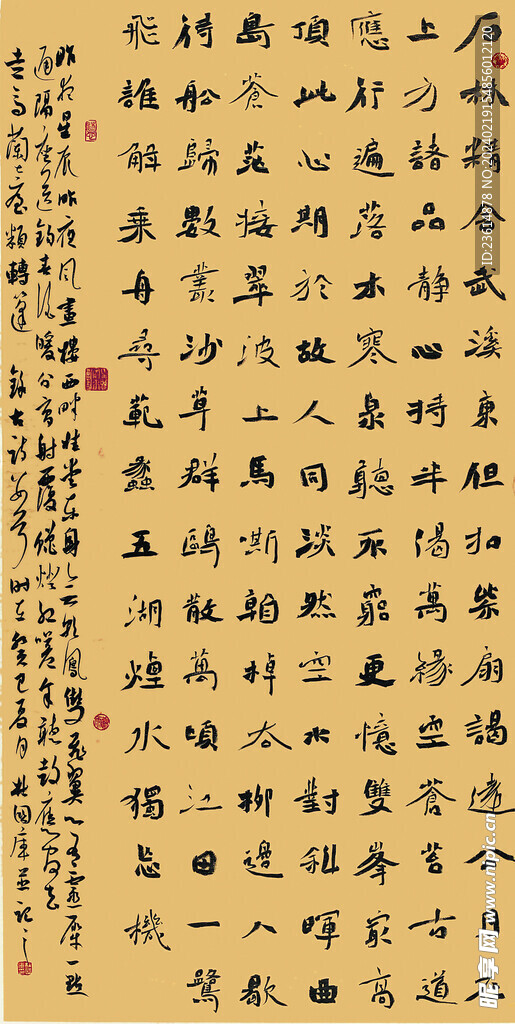 石林精舍武溪東但扣柴扇謁遠公月在
上方諸品靜心持半偈萬緣空蒼苔古道
應行遍落木寒泉聽不窮更憶雙峯最高
頂此心期於故人同淡然空水對斜暉曲
島蒼茫接翠波上馬嘶翰棹去柳邊人歇
待船歸數叢沙草群鷗散萬頃江田一鷺
飛誰解乘舟尋範蠡五湖煙水獨忘機
昨夜星辰昨夜風畫樓西畔桂堂東身無彩鳳雙飛翼心有靈犀一點
通隔座送鉤春酒暖分曹射覆蠟燈紅嗟余聽鼓應官去
走馬蘭臺類轉蓬 錄古詩 時在癸巳夏月 林國庫並記之
ID:23614878 NO:20240219154856012120
昵享网 www.nipic.cn